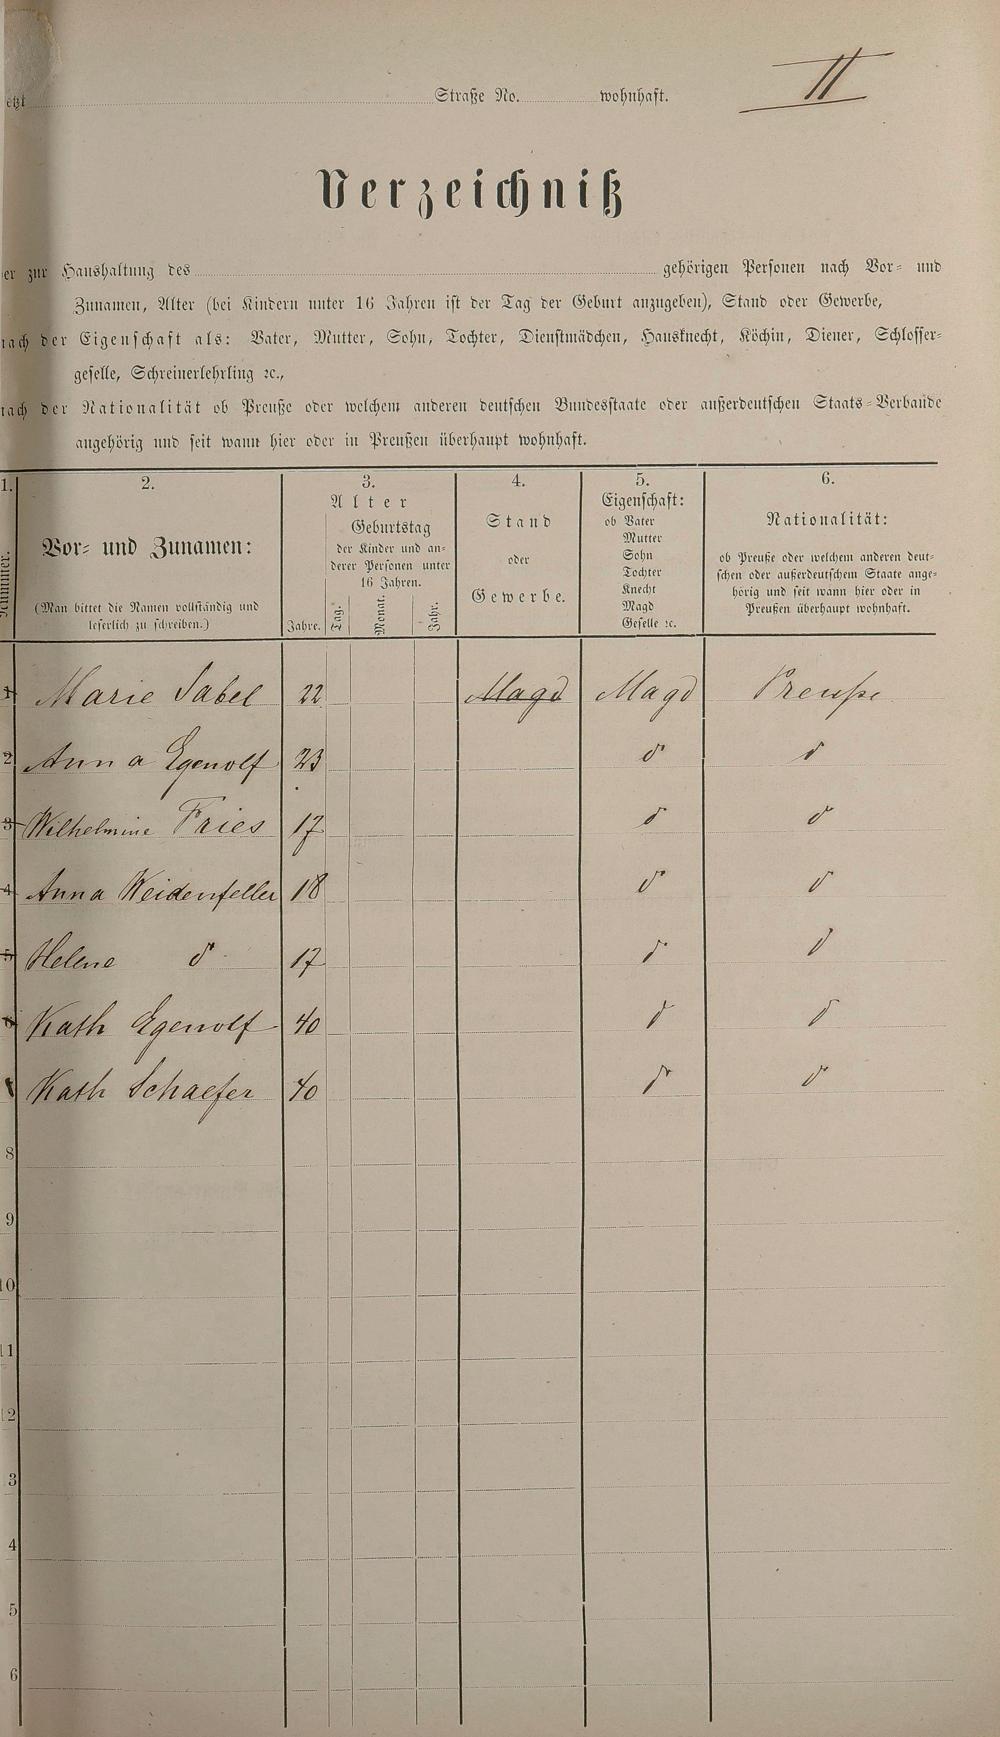 etzt Straße No. wohnhaft.
II
Verzeichniß
er zur Haushaltung des gehörigen Personen nach Vor- und
Zunamen, Alter (bei Kindern unter 16 Jahren ist der Tag der Geburt anzugeben), Stand oder Gewerbe,
nach der Eigenschaft als: Vater, Mutter, Sohn, Tochter, Dienstmädchen, Hausknecht, Köchin, Diener, Schlosser-
geselle, Schreinerlehrling ꝛc.,
nach der Nationalität ob Preuße oder welchem anderen deutschen Bundesstaate oder außerdeutschen Staats-Verbande
angehörig und seit wann hier oder in Preußen überhaupt wohnhaft.
1. 2. 3. 4. 5. 6.
Nummer.
Vor- und Zunamen:
(Man bittet die Namen vollständig und
leserlich zu schreiben.)
Alter
Geburtstag
der Kinder und an-
derer Personen unter
16 Jahren.
Jahre. Tag. Monat. Jahr.
Stand
oder
Gewerbe.
Eigenschaft:
ob Vater
Mutter
Sohn
Tochter
Knecht
Magd
Geselle ꝛc.
Nationalität:
ob Preuße oder welchem anderen deut-
schen oder außerdeutschem Staate ange-
hörig und seit wann hier oder in
Preußen überhaupt wohnhaft.
1 Marie Sabel 22 Magd Magd Preuße
2 Anna Egenolf 23 do do
3 Wilhelmine Fries 17 do do
4 Anna Weidenfeller 18 do do
5 Helene do 17 do do
6 Kath Egenolf 40 do do
Kath Schaefer 40 do do
8
9
10
11
12
3
4
5
6